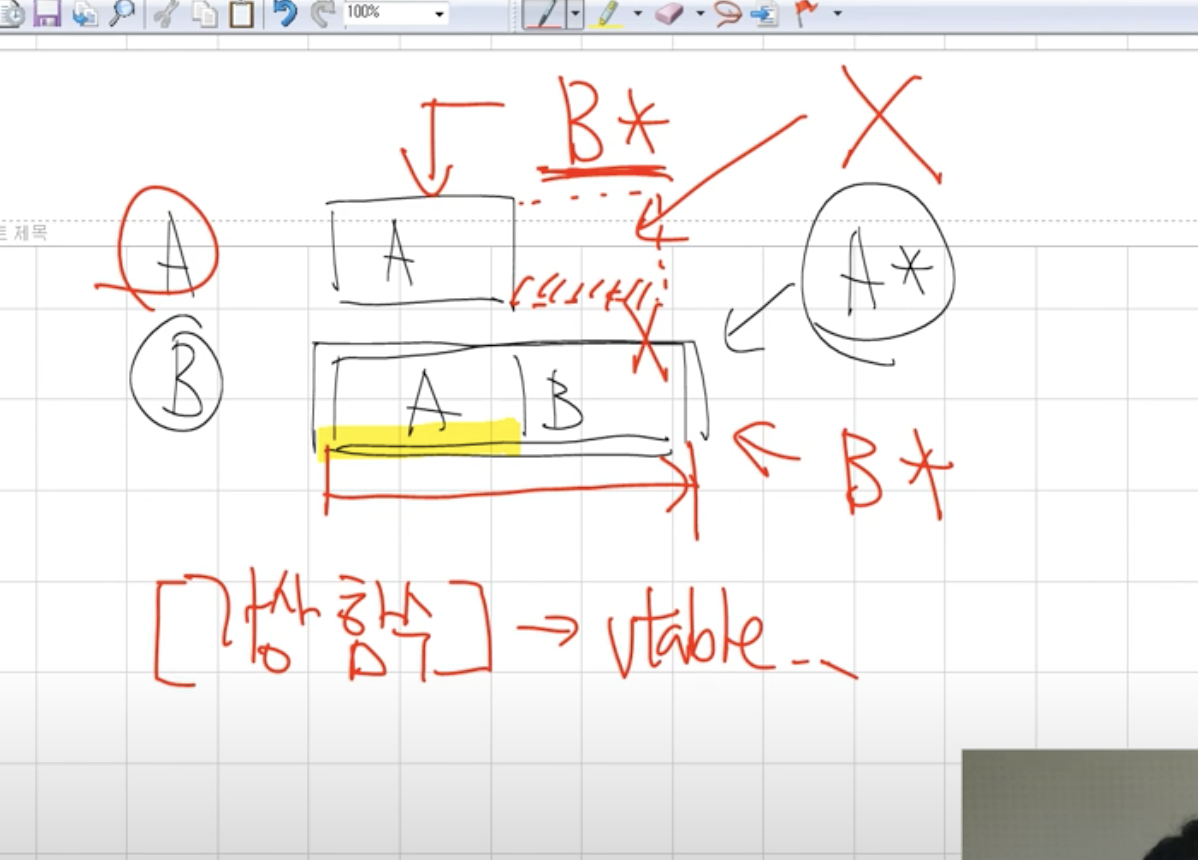 100%
B* X
트 제목
A A A*
B A B
B*
[가상 함수] → vtable..